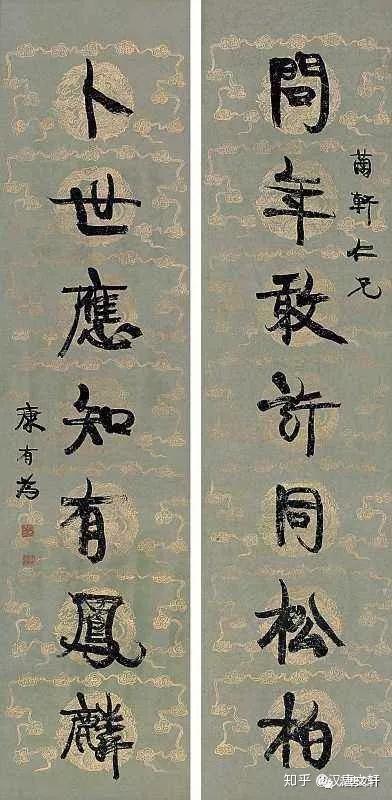 問年敢許同松柏
蘭軒仁兄
卜世應知有鳳麟
康有為
知乎 @汉唐文轩